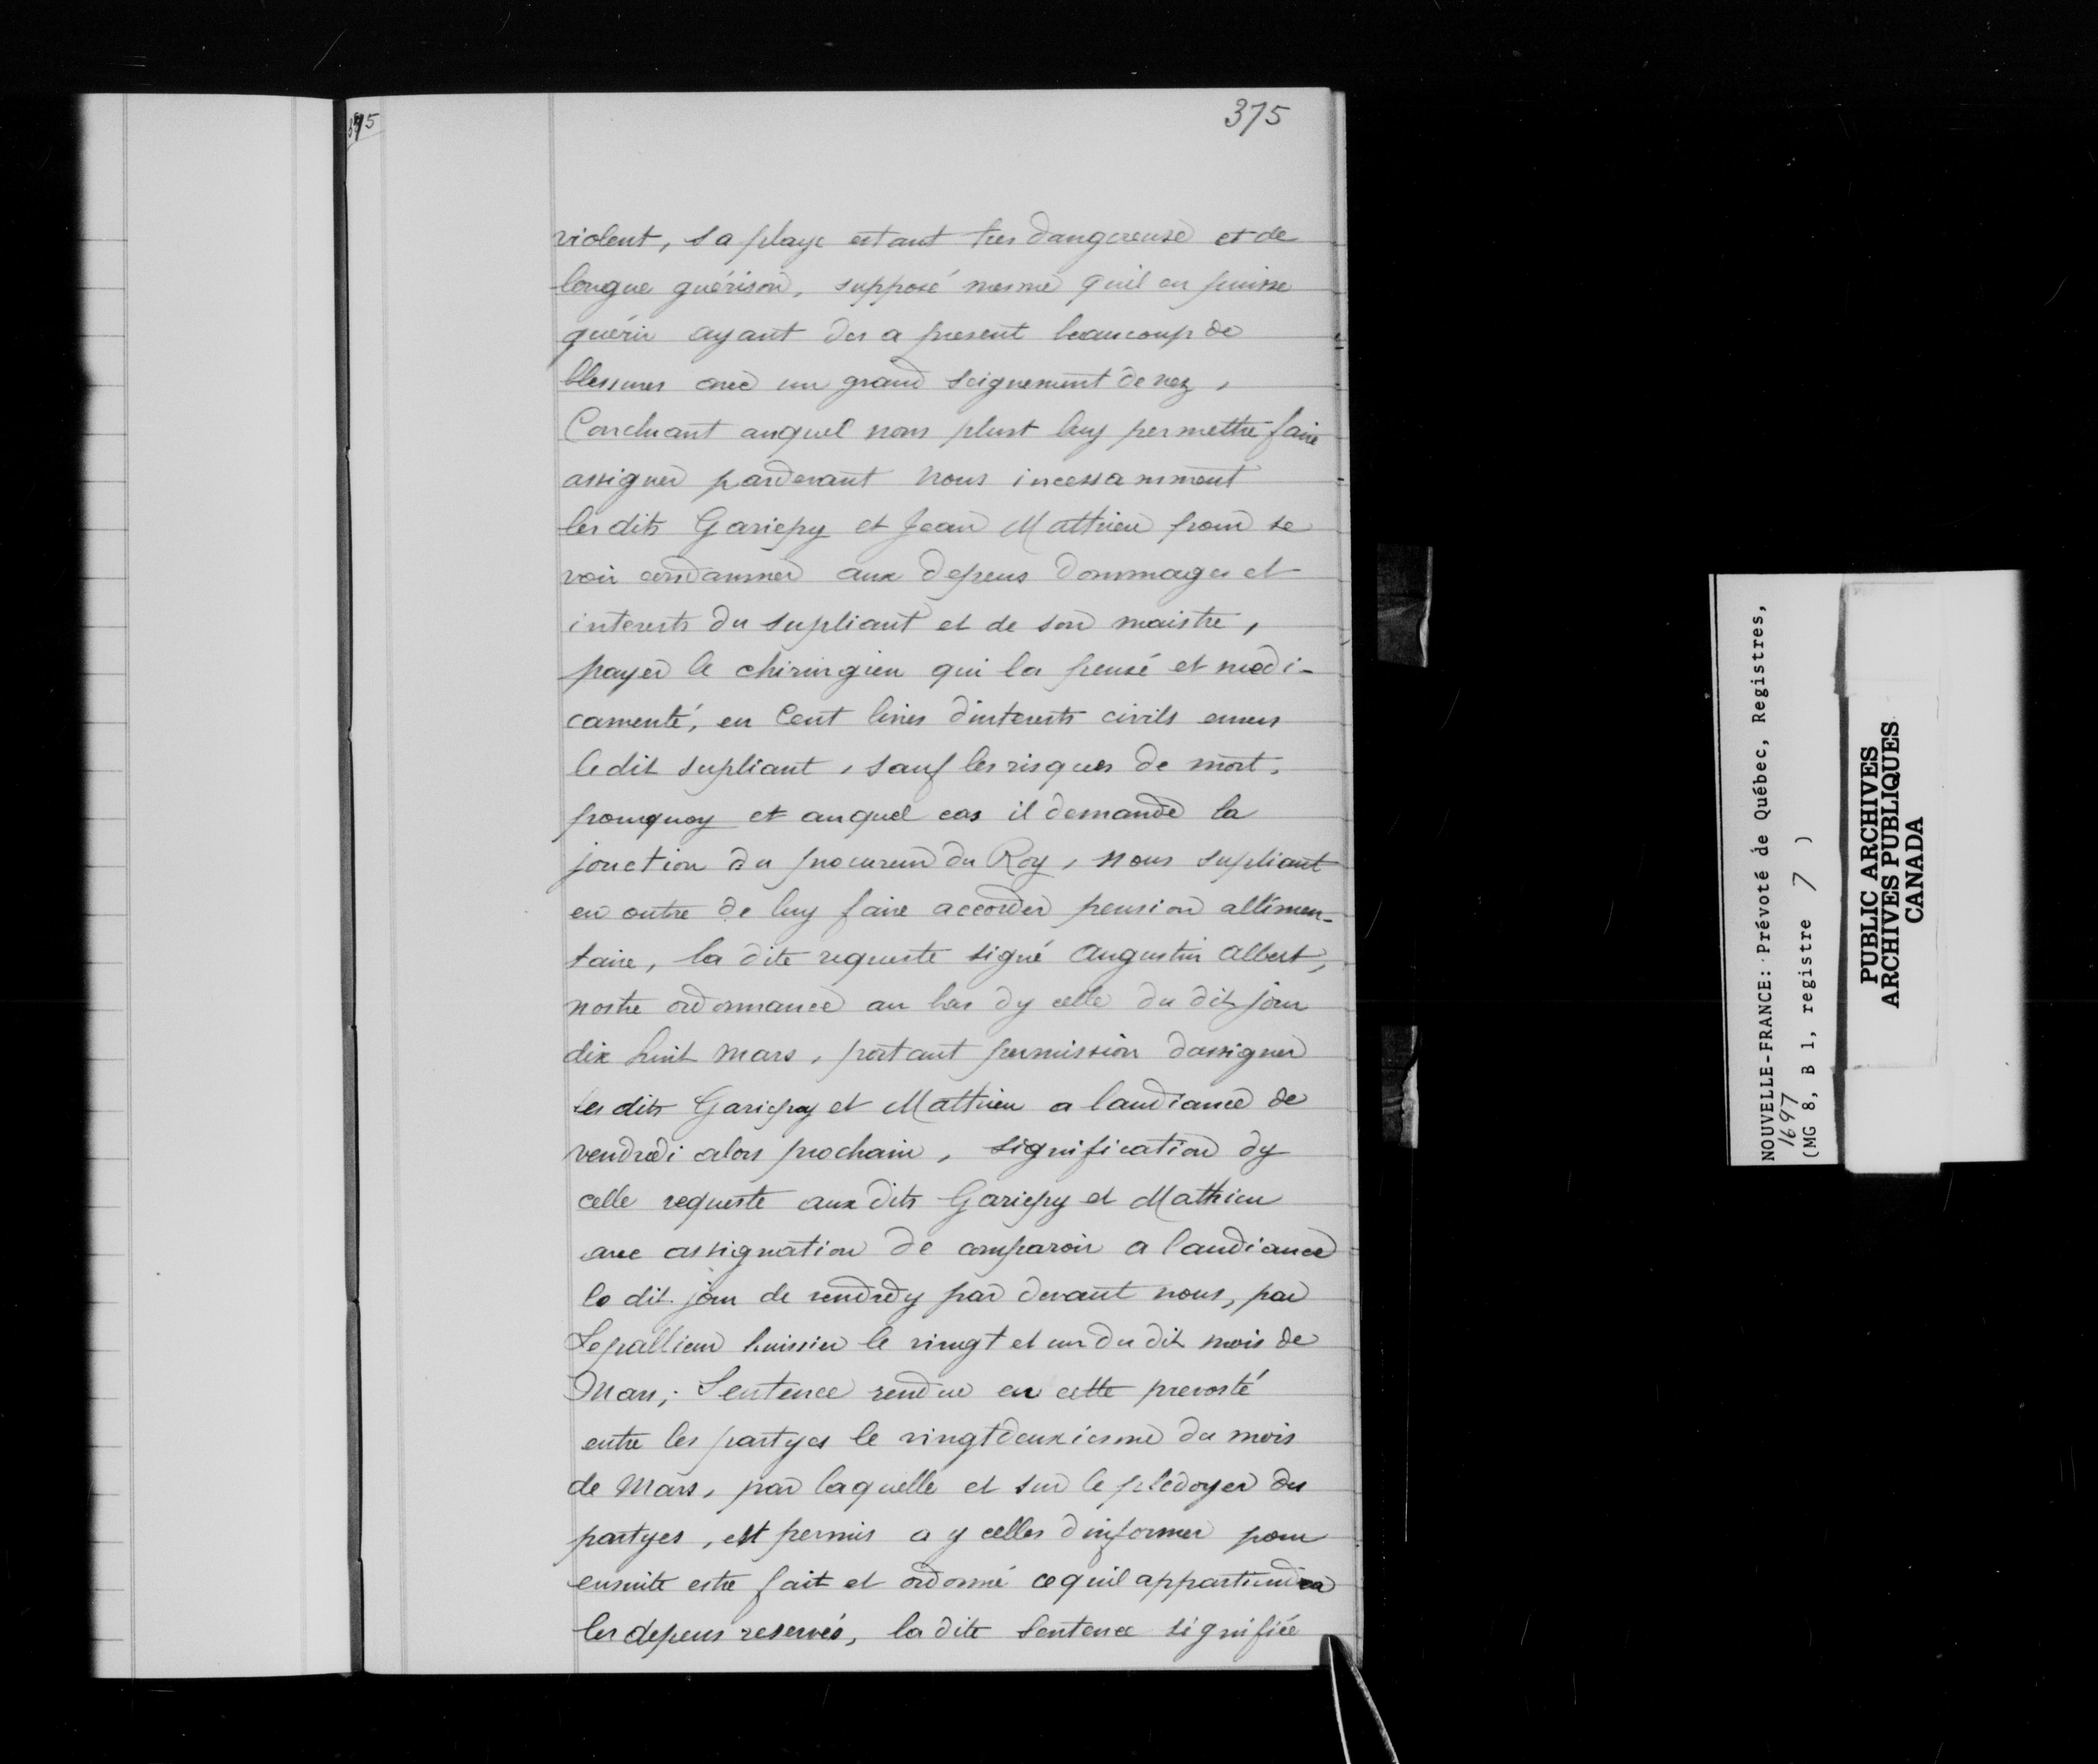 375
violent, sa playe estant tres dangereuse et de
longue guérison, supposé mesme quil en puisse
guérir ayant des a present beaucoup de
blessures avec un grand seignement de nez,
Concluant auquel nous plust luy permettre faire
assigner pardevant nous incessamment
les dits Gariepy et Jean Mathieu pour se
voir condamner aux depens dommages et
interests du supliant et de son maistre,
payer le chirurgien qui la pensé et medi-
camenté, en Cent livres dinterests civils envers
le dit supliant, sauf les risques de mort,
pourquoy et auquel cas il demande la
jonction du procureur du Roy, nous supliant
en outre de luy faire accorder pension allimen-
taire, la dite requeste signé Augustin Albert,
nostre ordonnance au bas dy celle du dit jour
dix huit mars, portant permission dassigner
les dits Gariepy et Mathieu a laudiance de
vendredi alors prochain, signification dy
celle requeste aux dits Gariepy et Mathieu
avec assignation de comparoir a laudiance
le dit jour de vendredy par devant nous, par
Lepallieur huissier le vingt et un du dit mois de
Mars; Sentence rendue en cette prevosté
entre les partyes le vingtdeuxiesme du mois
de Mars, par laquelle et sur le pledoyer des
partyes, est permis a y celles dinformer pour
ensuite estre fait et ordonné ce quil appartiendra
les depens reservés, la dite Sentence signifiée
NOUVELLE-FRANCE: Prévoté de Québec, Registres,
1697
(MG 8, B 1, registre 7 )
PUBLIC ARCHIVES
ARCHIVES PUBLIQUES
CANADA